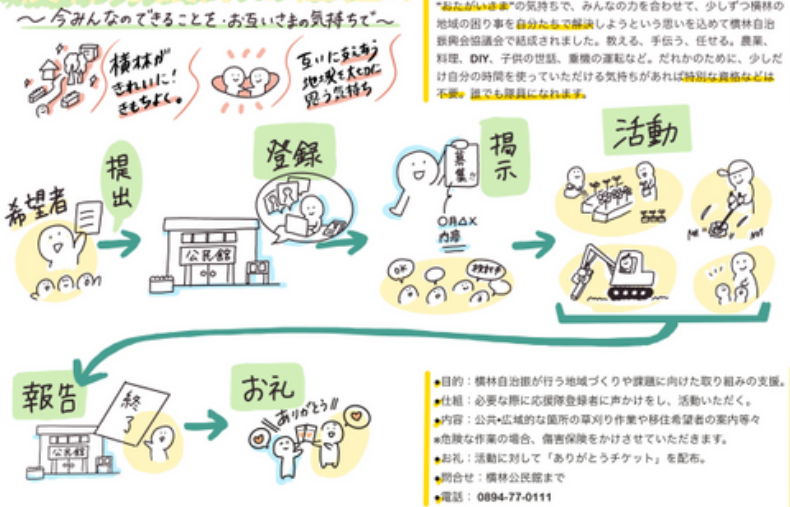 ～今みんなのできることを・お互いさまの気持ちで～
横林が
きれいに！
きもちよく。
互いに支え合う
地域を大切に
思う気持ち
"おたがいさま"の気持ちで、みんなの力を合わせて、少しずつ横林の
地域の困り事を自分たちで解決しようという思いを込めて横林自治
振興会協議会で結成されました。教える、手伝う、任せる。農業、
料理、DIY、子供の世話、重機の運転など。だれかのために、少しだ
け自分の時間を使っていただける気持ちがあれば特別な資格などは
不要。誰でも隊員になれます。
希望者
提出
登録
公民館
掲示
募集
〇月△×
内容
OK
活動
報告
終了
公民館
お礼
ありがとう！
●目的：横林自治振が行う地域づくりや課題に向けた取り組みの支援。
●仕組：必要な際に応援隊登録者に声かけをし、活動いただく。
●内容：公共・広域的な箇所の草刈り作業や移住希望者の案内等々
※危険な作業の場合、傷害保険をかけさせていただきます。
●お礼：活動に対して「ありがとうチケット」を配布。
●問合せ：横林公民館まで
●電話： 0894-77-0111